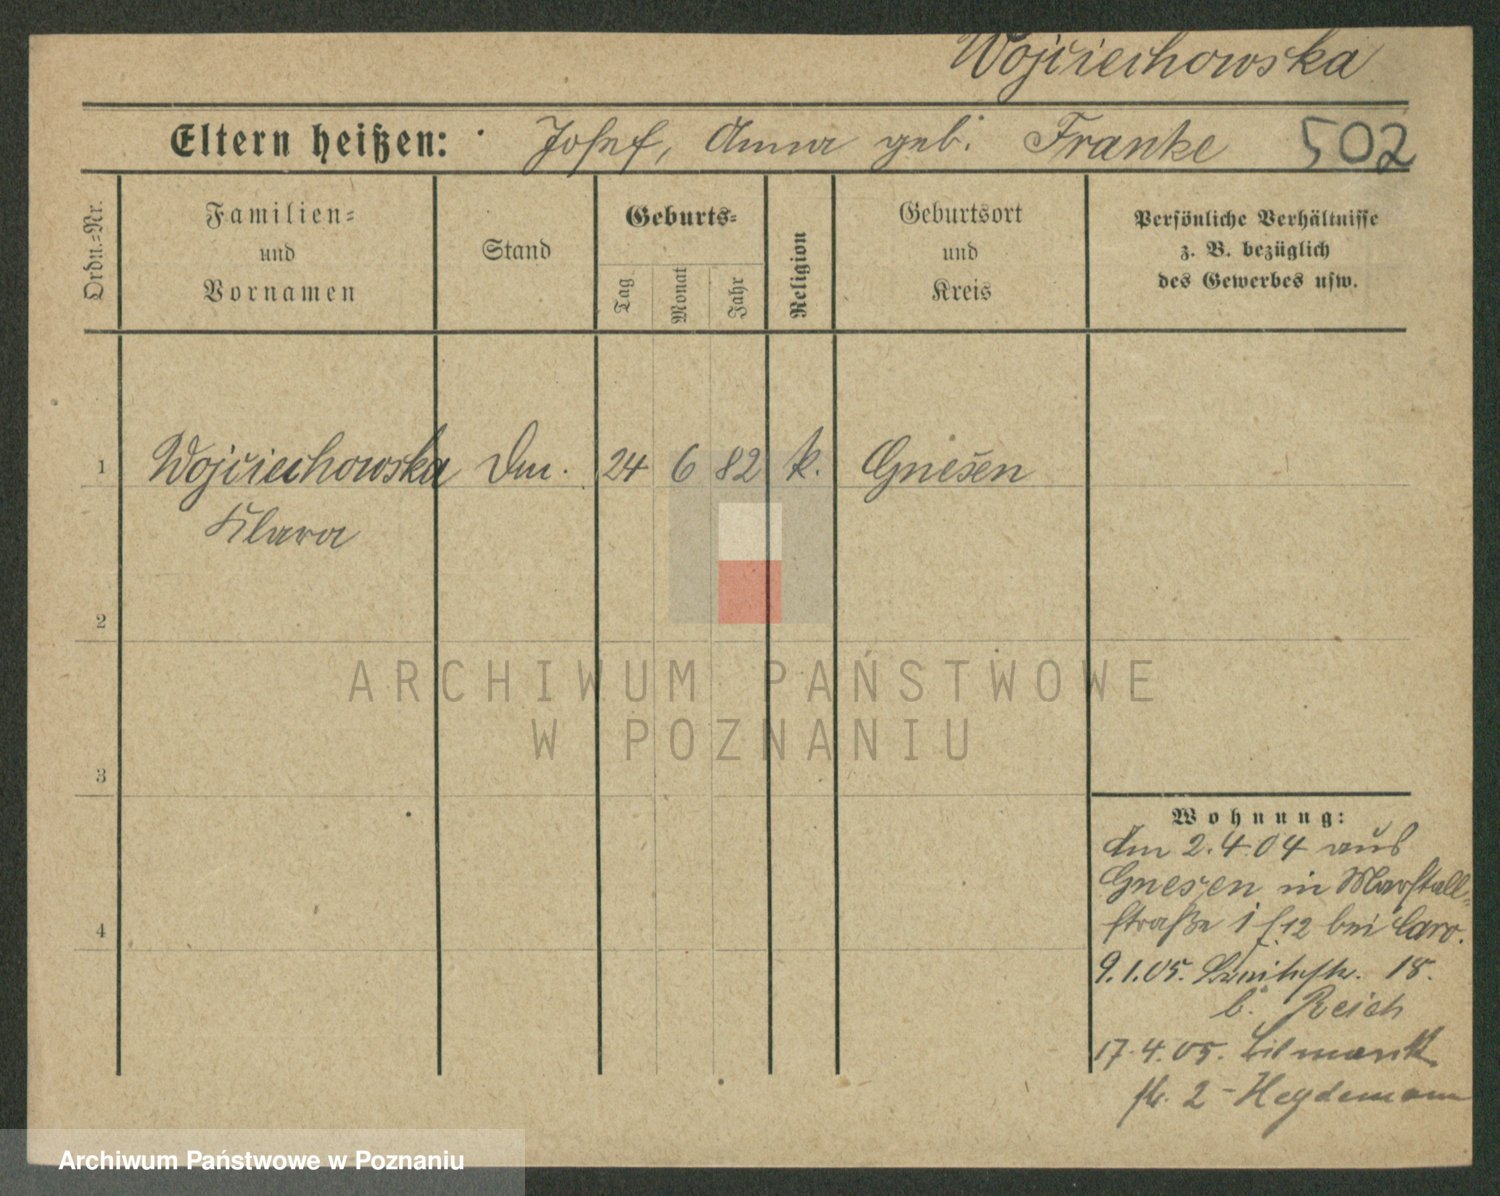 Wojciechowska
Eltern heißen: Josef, Anna geb. Franke 502
Ordn.=Nr.
Familien=
und
Vornamen
Stand
Geburts=
Tag
Monat
Jahr
Religion
Geburtsort
und
Kreis
Persönliche Verhältnisse
z. B. bezüglich
des Gewerbes usw.
1 Wojciechowska 24 6 82 k. Gnesen
Klara
2
3
4
Wohnung:
Am 2.4.04 aus
Gnesen in Marstall=
straße 12 bei Caro.
9.1.05. Breitestr. 18.
b. Reich
17.4.05. Bismarck
str. 2 - Heydemann
ARCHIWUM PAŃSTWOWE
W POZNANIU
Archiwum Państwowe w Poznaniu